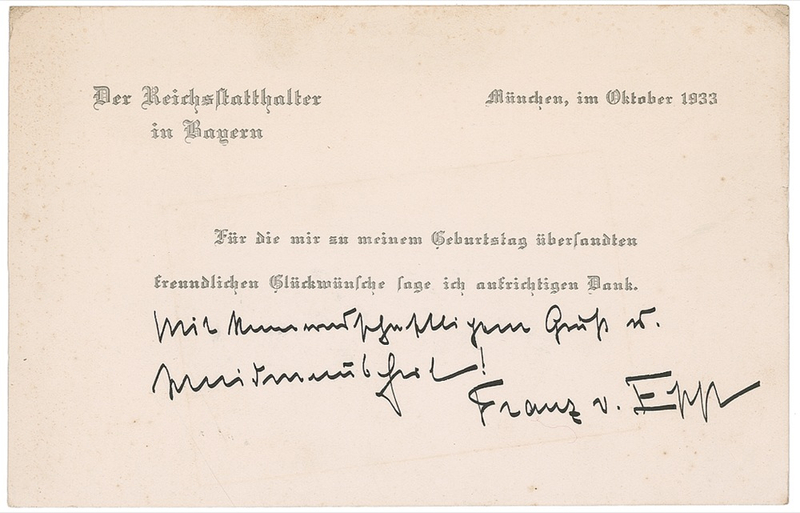 Der Reichsstatthalter
in Bayern
München, im Oktober 1933
Für die mir zu meinem Geburtstag übersandten
freundlichen Glückwünsche sage ich aufrichtigen Dank.
Mit kameradschaftlichem Gruß u.
Weidmannsheil!
Franz v. Epp